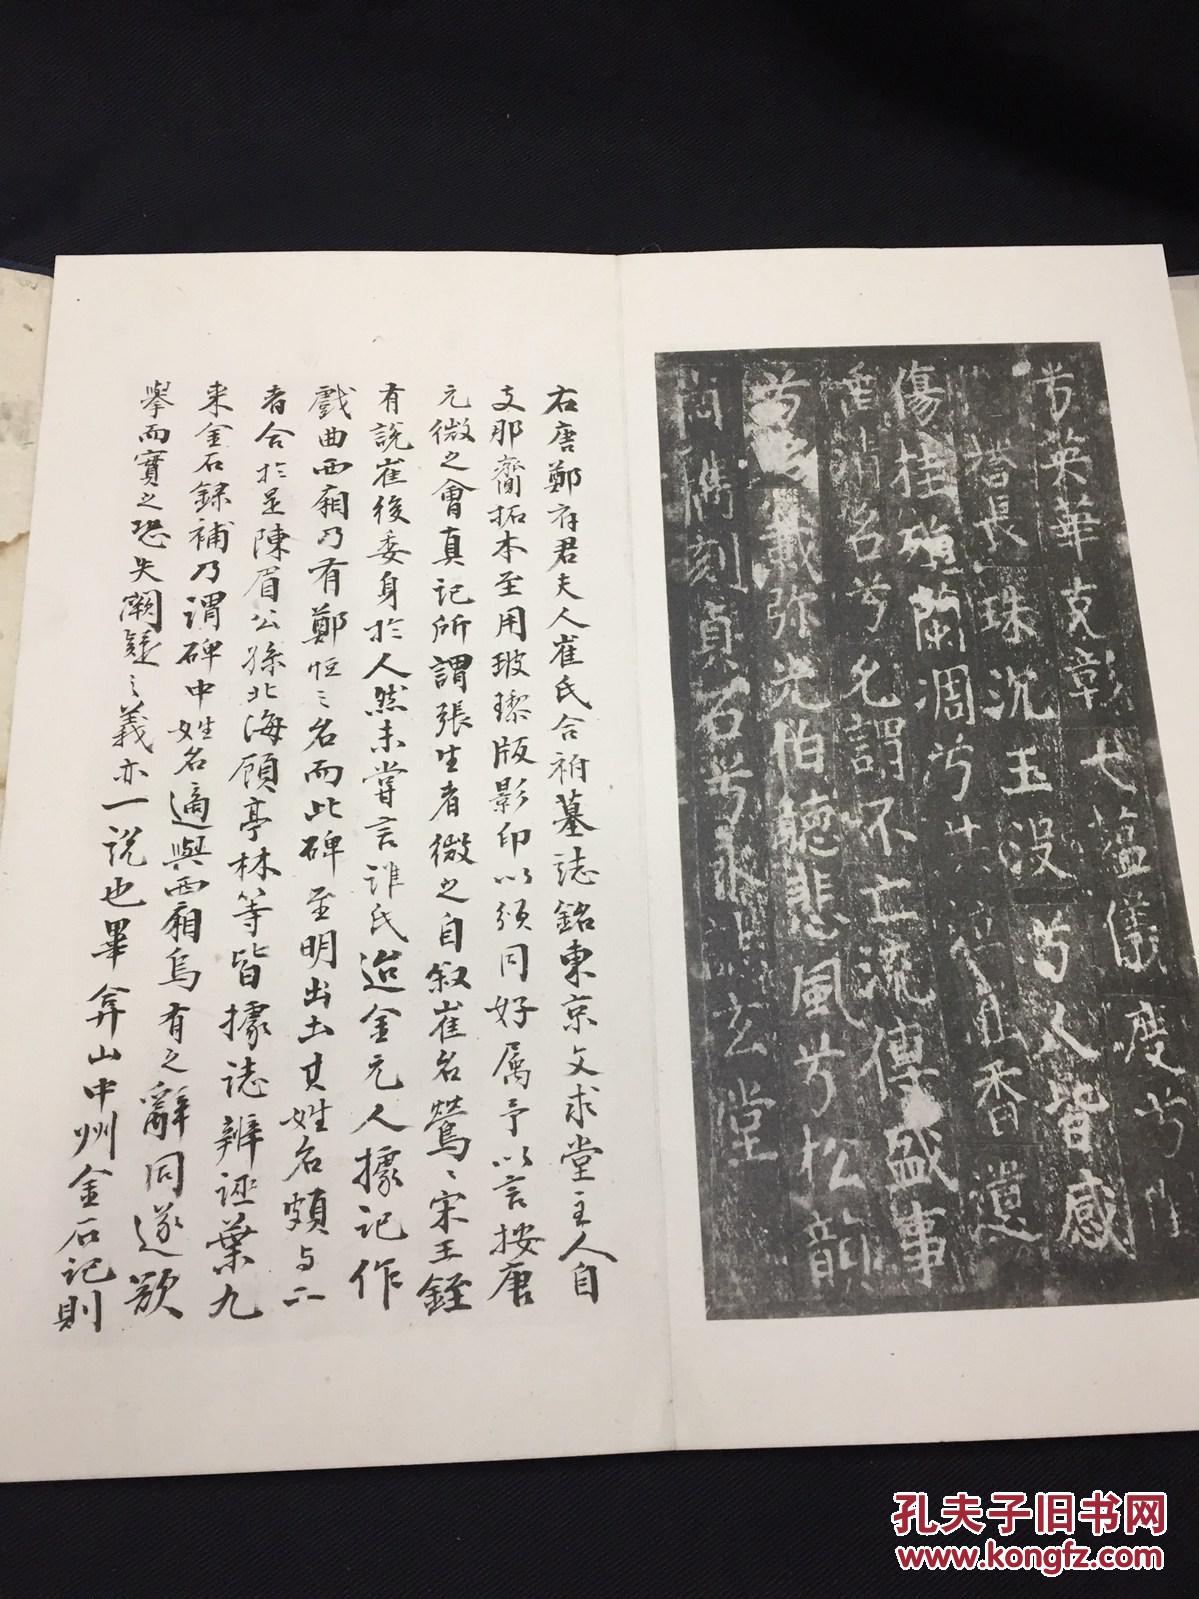 兮英華克彰七蘊儀度兮
沓長珠沉玉沒兮人皆感
傷桂殞蘭凋兮共泣且香遺
名兮允謂不亡流傳盛事
兮載弥光伯聽悲風兮松韻
刻貞石兮永玄堂
右唐鄭府君夫人崔氏合祔墓誌銘東京文求堂主人自
支那齎拓本至用玻瓈版影印以頒同好属予以言按唐
元微之會真記所謂張生者微之自叙崔名鶯〻宋王銍
有說崔後委身於人然未嘗言誰氏迨金元人據記作
戲曲西廂乃有鄭恒之名而此碑至明出土其姓名頗与二
者合於是陳眉公孫北海顧亭林等皆據誌辨誣葉九
来金石録補乃謂碑中姓名適與西廂烏有之辭同遂欲
舉而實之恐失闕疑之義亦一說也畢弇山中州金石記則
孔夫子旧书网
www.kongfz.com